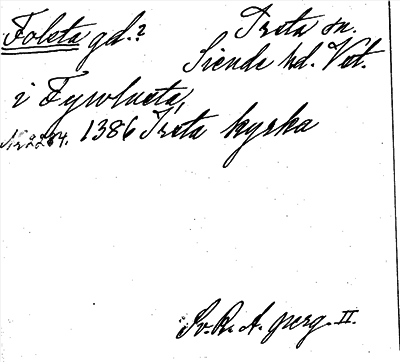 Foleta gd.?
Irsta sn.
Siende hd. Vst.
i Fywlusta,
Nr 2284. 1386 Irsta kyrka
Sv. R. A. perg. II.